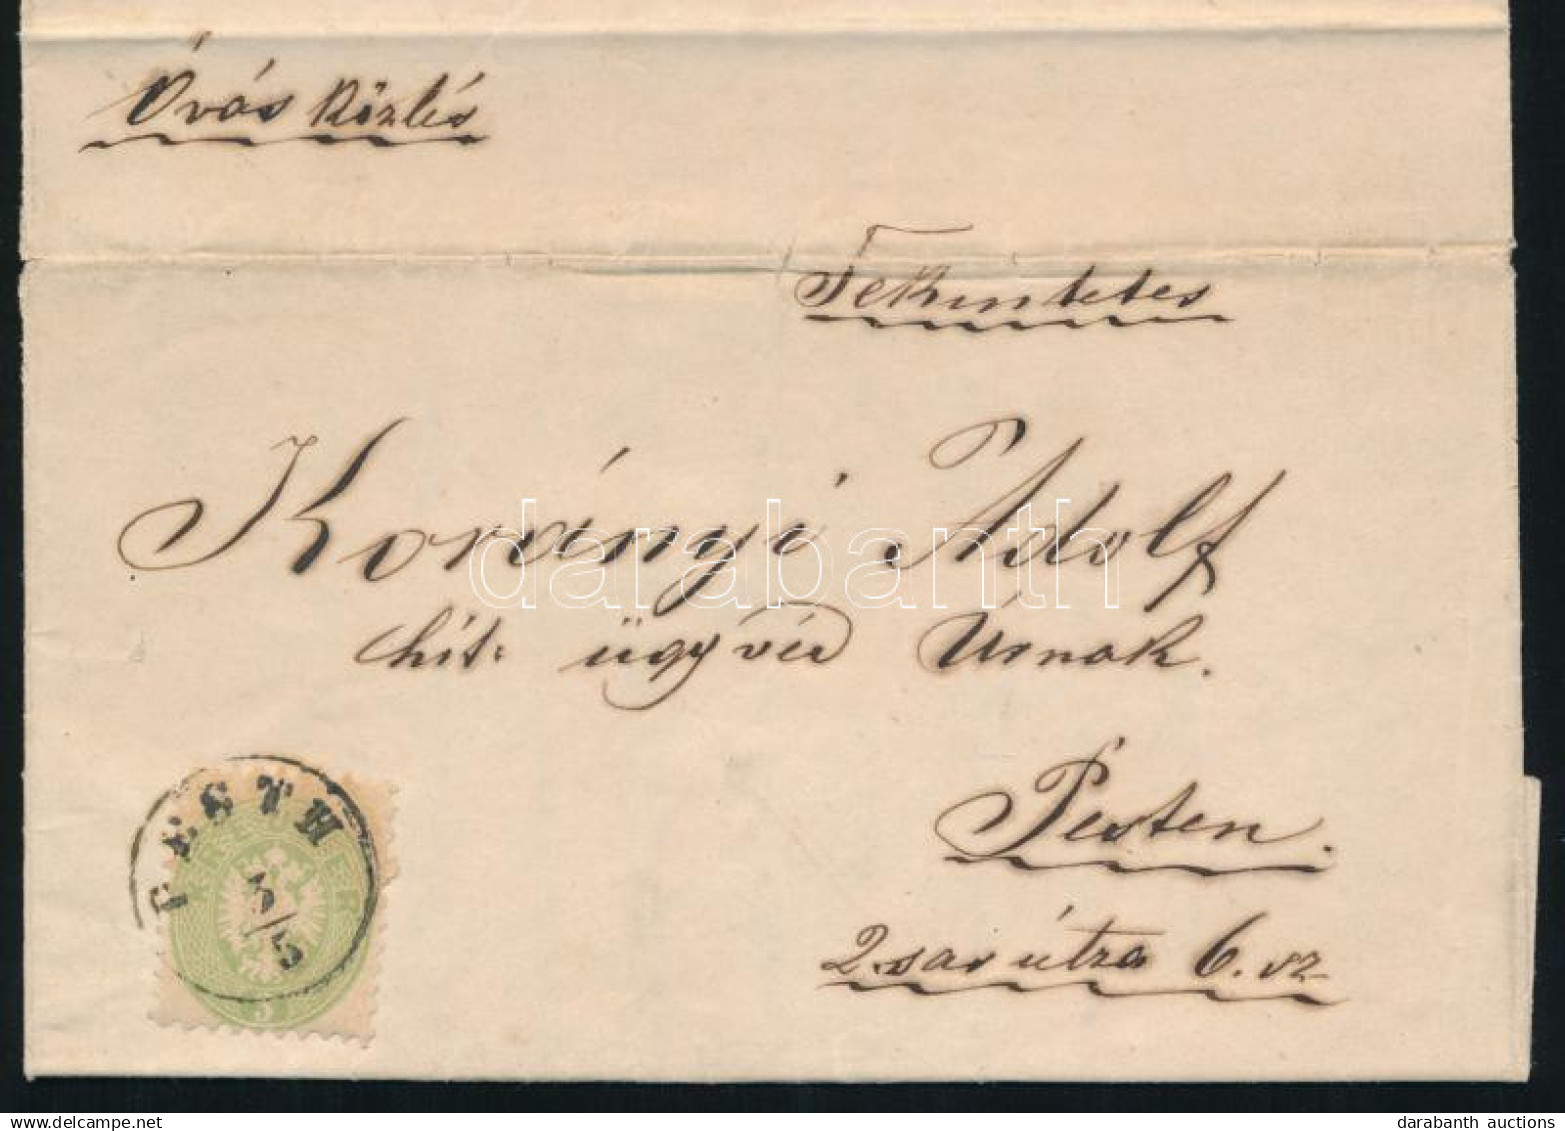 Óvás Közlés
Tekintetes
Korányi Adolf
hit: ügyvéd Úrnak.
Pesten.
2 sas útza 6. sz
PESTH
3/5
3
darabanth
darabanth auctions